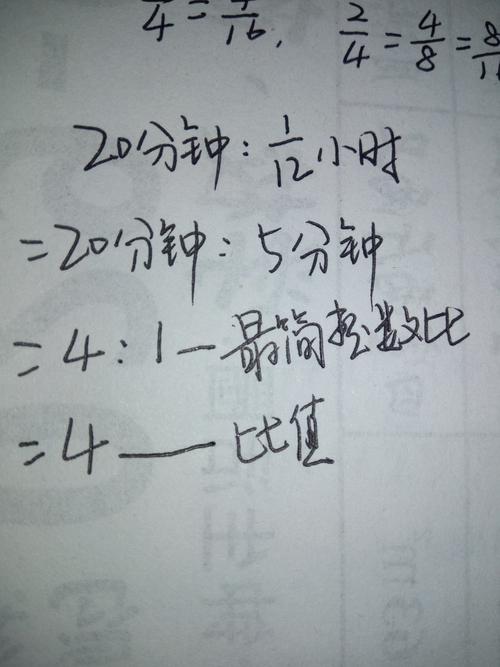 4 = 16, 2/4 = 4/8 = 8
20分钟: 1/12小时
=20分钟: 5分钟
= 4 : 1 — 最简整数比
= 4 —— 比值